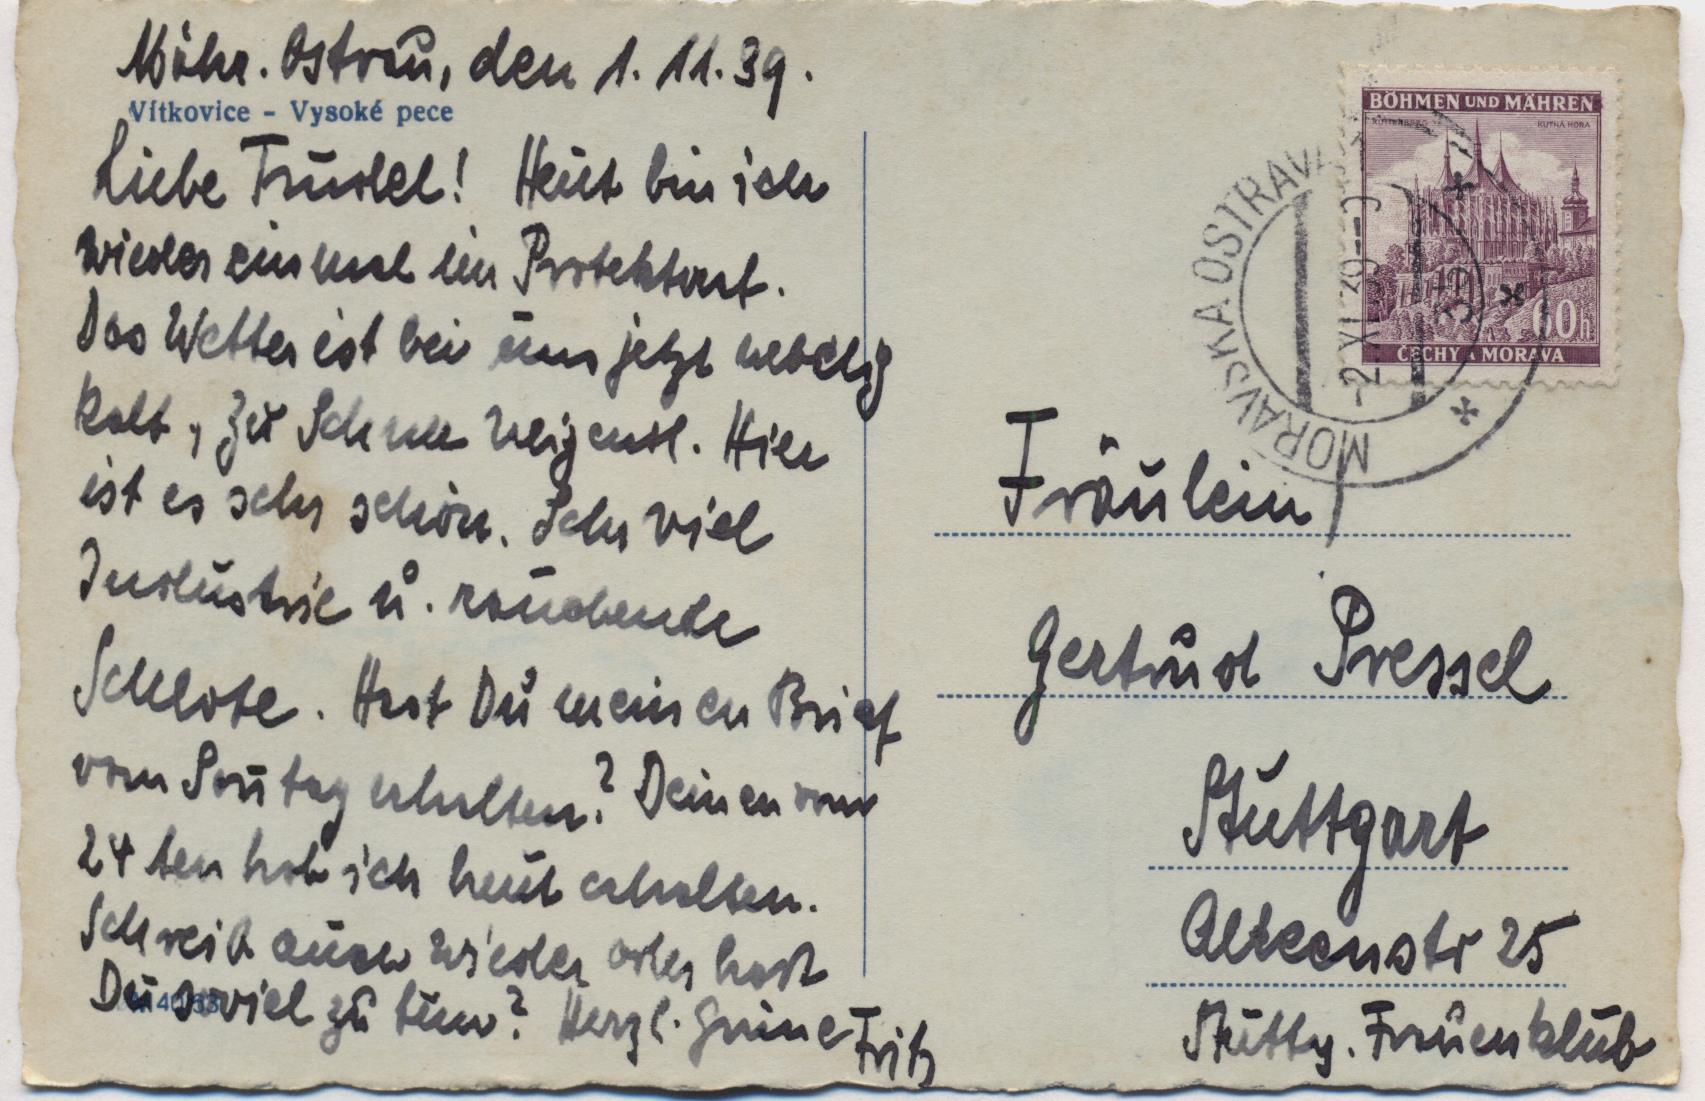 Mähr. Ostrau, den 1. 11. 39.
Vítkovice - Vysoké pece
Liebe Trudel! Heut bin ich
wieder einmal im Protektorat.
Das Wetter ist bei uns jetzt neblig
kalt, zu Schnee neigend. Hier
ist es sehr schön. Sehr viel
Industrie u. rauchende
Schlote. Hast Du meinen Brief
vom Sonntag erhalten? Deinen vom
24 ten hab ich heut erhalten.
Schreib auch wieder oder hast
Du soviel zu tun? Herzl. Grüße Fritz
BÖHMEN UND MÄHREN
KUTTENBERG KUTNÁ HORA
60h
ČECHY A MORAVA
MORAVSKÁ OSTRAVA
-2.XI.39.-9
Fräulein
Gertrud Pressel
Stuttgart
Alleenstr 25
Stuttg. Frauenklub